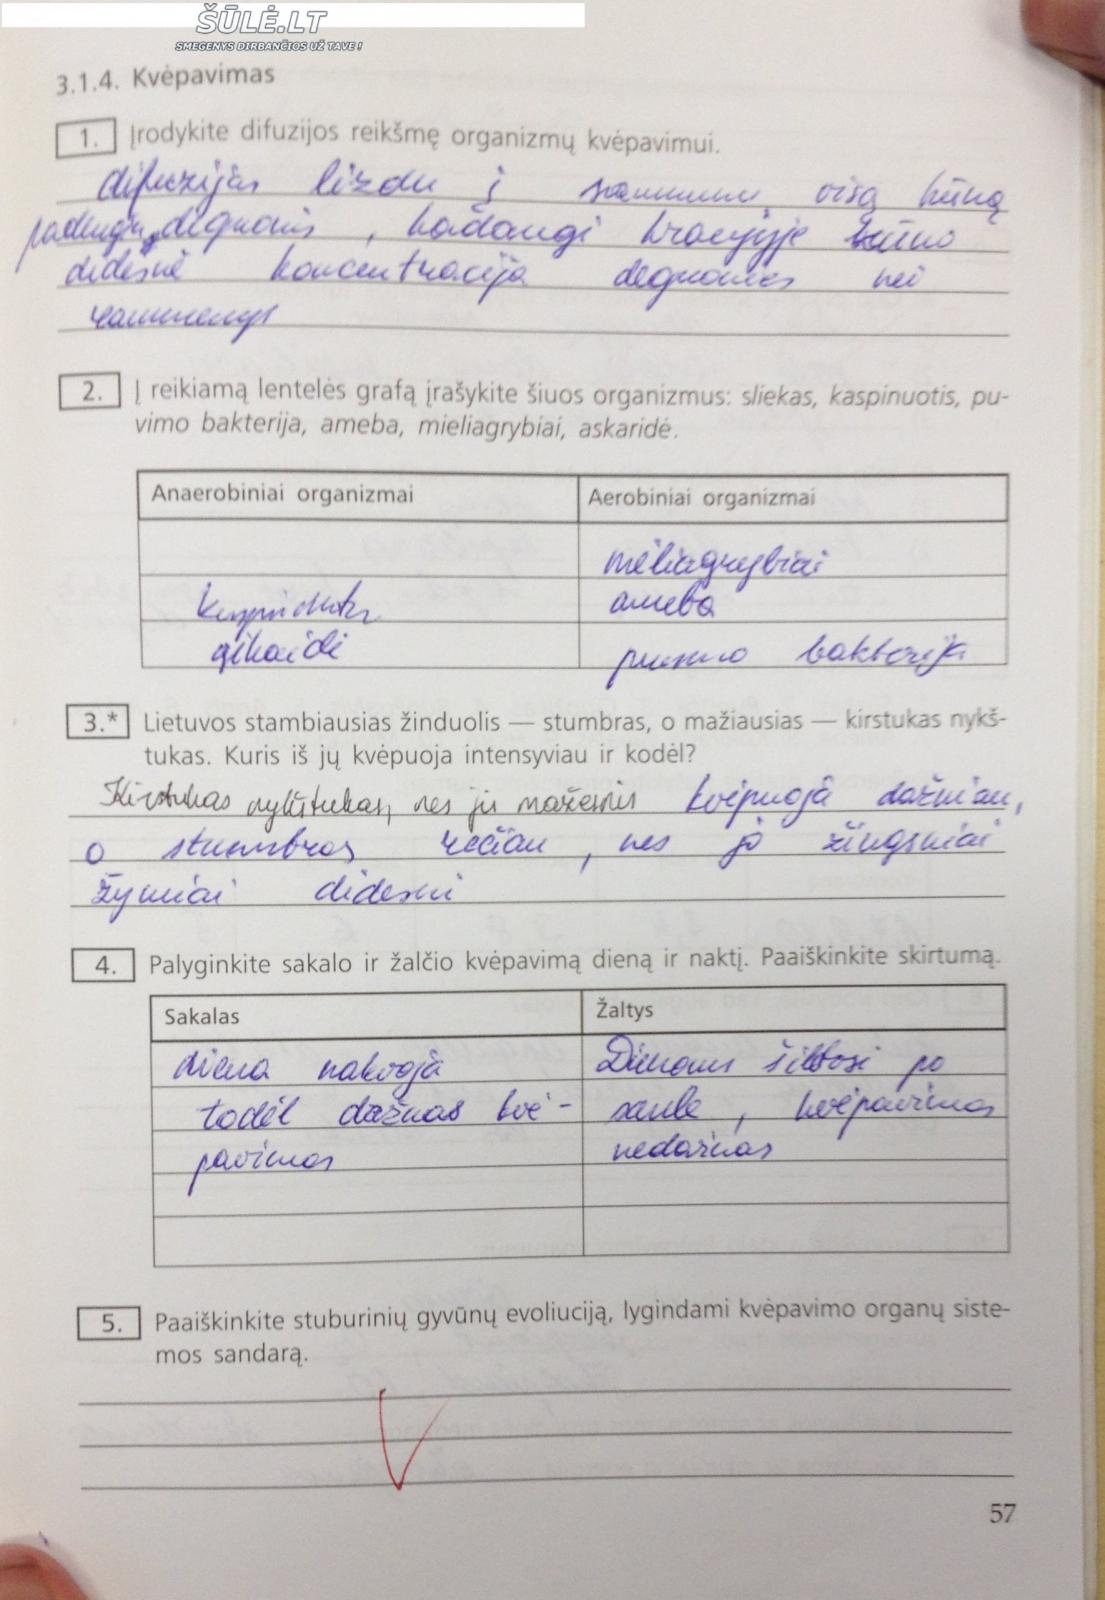 ŠŪLĖ.LT
SMEGENYS DIRBANČIOS UŽ TAVE !
3.1.4. Kvėpavimas
1. Įrodykite difuzijos reikšmę organizmų kvėpavimui.
difuzijas į visą kūną
deguonis, kadangi kraujyje kūno
didesnė koncentracija deguonies nei
raumenys
2. Į reikiamą lentelės grafą įrašykite šiuos organizmus: sliekas, kaspinuotis, pu-
vimo bakterija, ameba, mieliagrybiai, askaridė.
Anaerobiniai organizmai
Aerobiniai organizmai
mėliagrybiai
ameba
bakterija
3.* Lietuvos stambiausias žinduolis — stumbras, o mažiausias — kirstukas nykš-
tukas. Kuris iš jų kvėpuoja intensyviau ir kodėl?
Kirstukas nykštukas, nes jis mažesnis kvėpuoja dažniau,
o stumbras rečiau, nes jo žingsniai
žymiai didesni
4. Palyginkite sakalo ir žalčio kvėpavimą dieną ir naktį. Paaiškinkite skirtumą.
Sakalas
Žaltys
diena
todėl dažnas kvė-
pavimas
Dienomis šildosi po
saule, kvėpavimas
nedažnas
5. Paaiškinkite stuburinių gyvūnų evoliuciją, lygindami kvėpavimo organų siste-
mos sandarą.
57